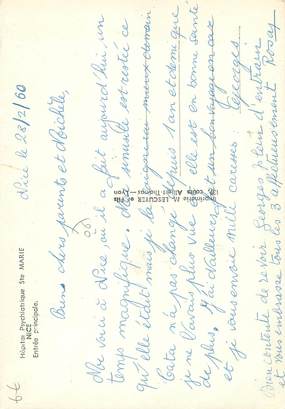 Nice le 28/2/60
Bien chers parents et Michèle,
Me voici à Nice où il a fait aujourd'hui, un
temps magnifique.
qu'elle était mais je la
Tata n'a pas changé depuis 1 an et demi que
je ne l'avais plus vue et elle est en bonne santé
de plus.
et je vous envoie mille caresses
Georges
Bien contente de revoir Georges plein d'entrain
et vous embrasse tous les 3 affectueusement Rosa
Hôpital Psychiatrique Ste MARIE
NICE
Entrée principale.
Imprimerie M. LESCUYER et Fils
cours Albert-Thomas — Lyon
66